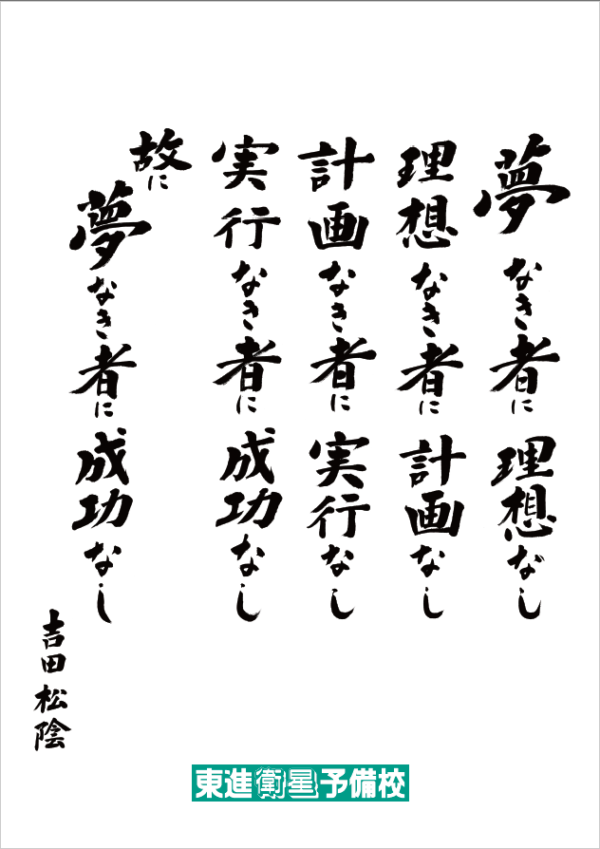 夢なき者に理想なし
理想なき者に計画なし
計画なき者に実行なし
実行なき者に成功なし
故に
夢なき者に成功なし
吉田松陰
東進衛星予備校